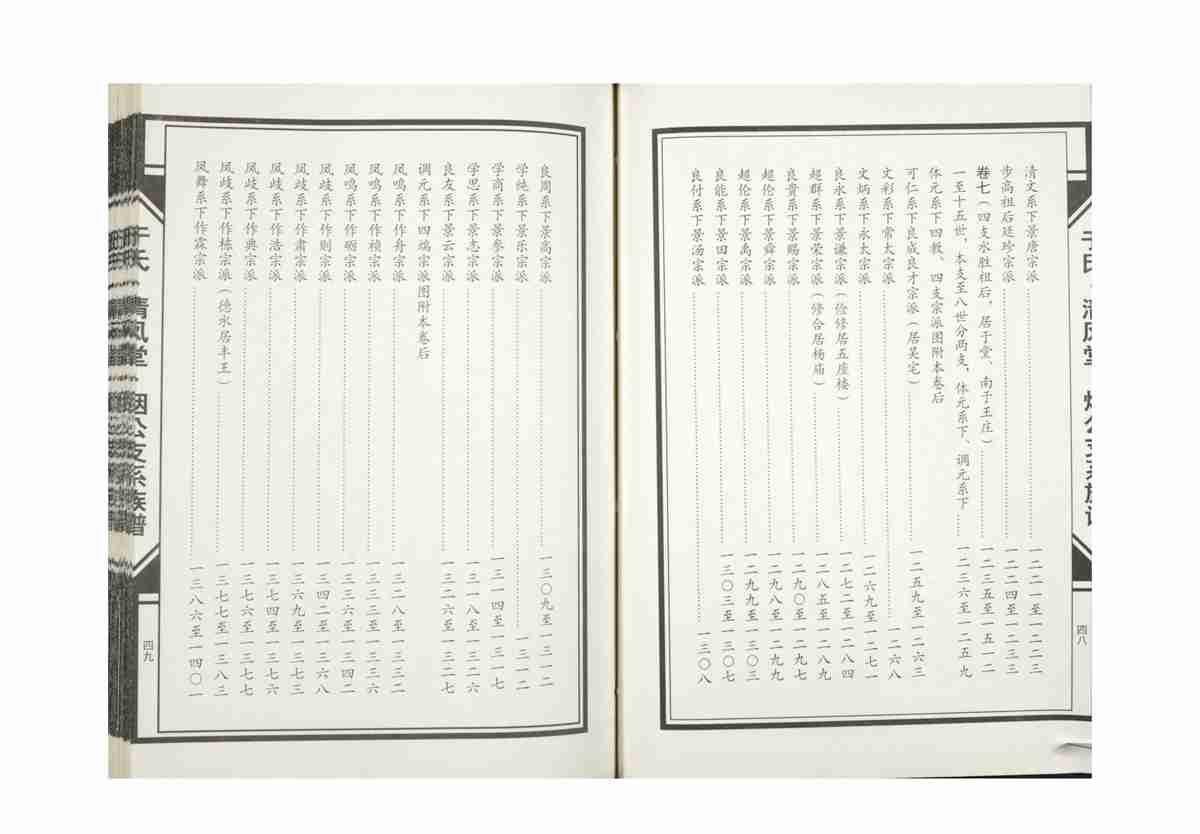 清文系下景唐宗派……一二二一至一二二三
步高祖后廷珍宗派……一二二四至一二三三
卷七（四支永胜祖后，居于堂、南于王庄）……一二三五至一五一二
一至十五世，本支至八世分两支，体元系下、调元系下……一二三六至一二五九
体元系下四教、四支宗派图附本卷后
可仁系下良成良才宗派（居吴宅）……一二五九至一二六三
文彩系下常太宗派……一二六八
文炳系下永太宗派……一二六九至一二七一
良永系下景谦宗派（俭修居五座楼）……一二七二至一二八四
超群系下景荣宗派（修合居杨庙）……一二八五至一二八九
良贵系下景赐宗派……一二九〇至一二九七
超伦系下景舜宗派……一二九七至一二九九
超伦系下景禹宗派……一二九九至一三〇三
良能系下景田宗派……一三〇三至一三〇七
良付系下景汤宗派……一三〇八
四八
良周系下景高宗派……一三〇九至一三一二
学纯系下景乐宗派……一三一二
学商系下景参宗派……一三一四至一三一七
学思系下景志宗派……一三一八至一三二六
良友系下景云宗派……一三二六至一三二七
调元系下四端宗派图附本卷后
凤鸣系下作舟宗派……一三二八至一三三二
凤鸣系下作祯宗派……一三三三至一三三六
凤鸣系下作砺宗派……一三三六至一三四二
凤岐系下作则宗派……一三四二至一三六八
凤岐系下作肃宗派……一三六九至一三七三
凤岐系下作浩宗派……一三七四至一三七六
凤岐系下作典宗派……一三七六至一三七七
凤岐系下作栋宗派（德永居丰王）……一三七七至一三八三
凤舞系下作霖宗派……一三八六至一四〇一
于氏·清风堂·烟公支系族谱
四九